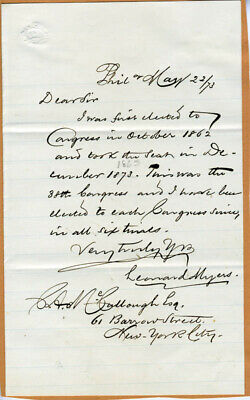 Phil a May 23/73
Dear Sir
I was first elected to
Congress in October 1862
and took the Seat, in De-
1863
cember 1873. This was the
38th Congress and I have been
elected to each Congress since,
in all six times.
Very truly Yrs
Leonard Myers.
C. A. McCullough Esq.
61 Barrow Street.
New-York City.